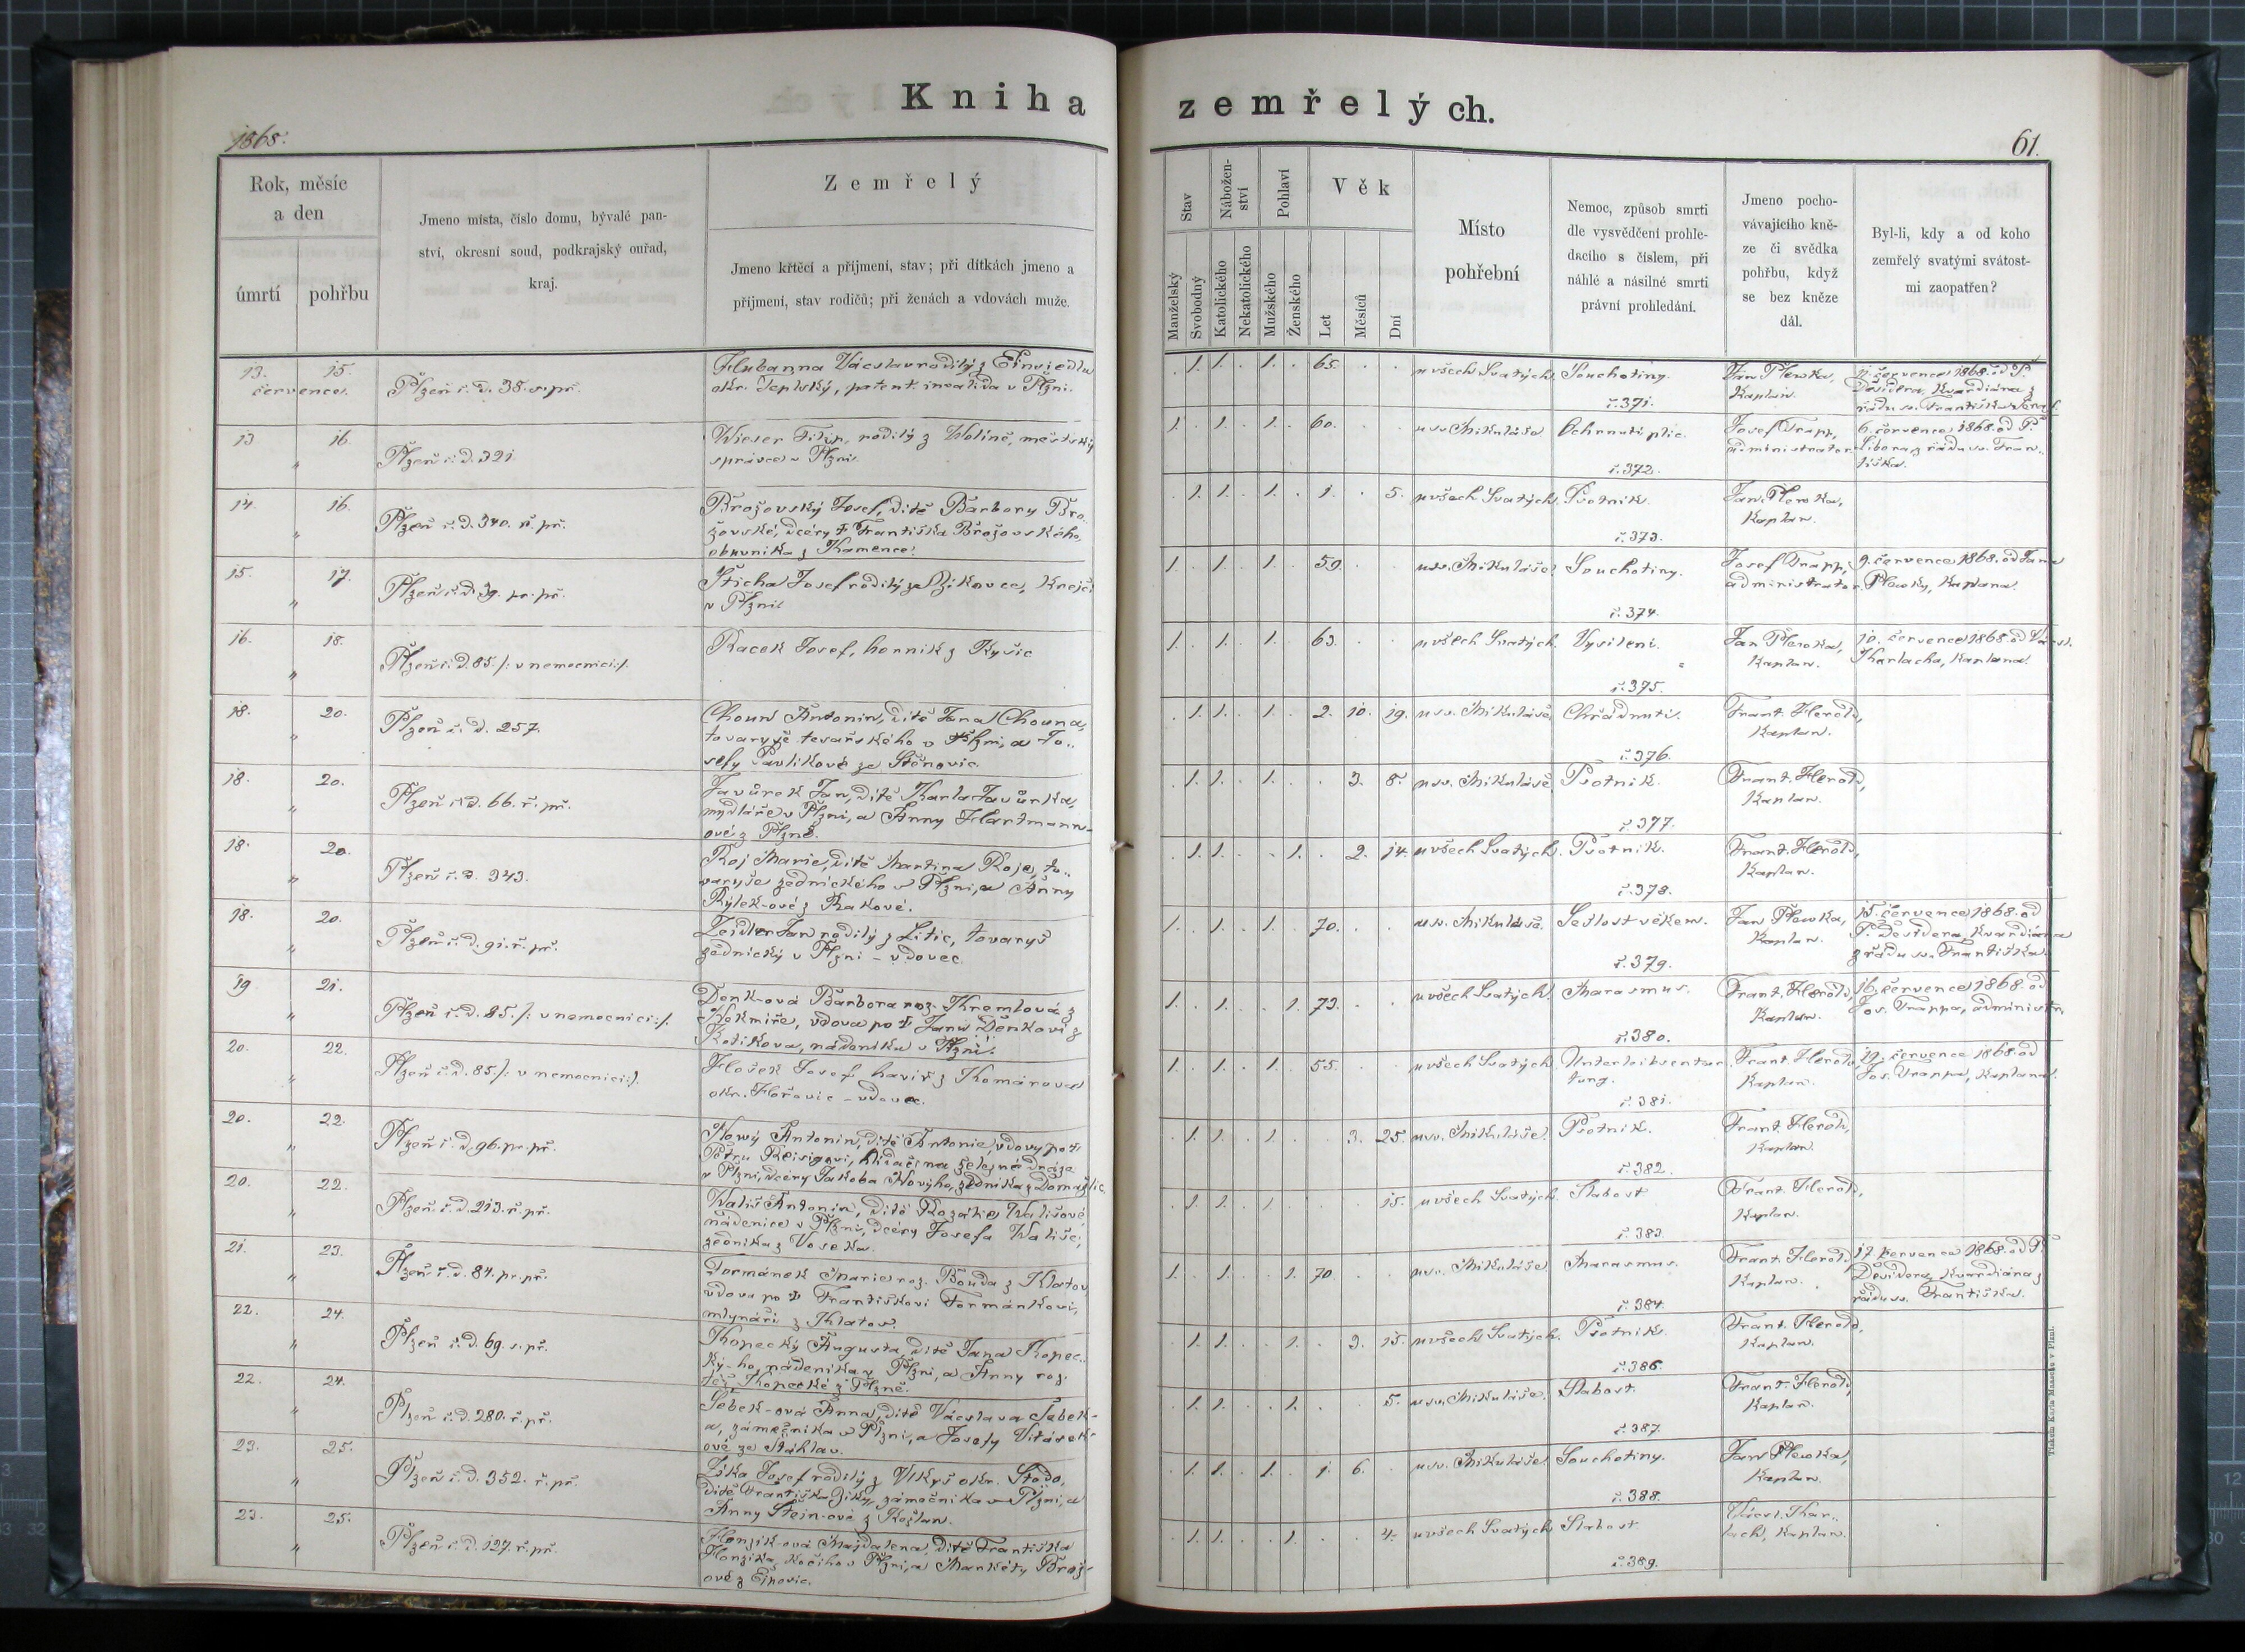 Kniha zemřelých.
1868.
61.
Rok, měsíc
a den
úmrtí
pohřbu
Jmeno místa, číslo domu, bývalé pan-
ství, okresní soud, podkrajský ouřad,
kraj.
Zemřelý
Jmeno křtěcí a příjmení, stav; při dítkách jmeno a
příjmení, stav rodičů; při ženách a vdovách muže.
Stav
Manželský
Svobodný
Nábožen-
ství
Katolického
Nekatolického
Pohlaví
Mužského
Ženského
Věk
Let
Měsíců
Dní
Místo
pohřební
Nemoc, způsob smrti
dle vysvědčení prohle-
dacího s číslem, při
náhlé a násilné smrti
právní prohledání.
Jmeno pocho-
vávajícího kně-
ze či svědka
pohřbu, když
se bez kněze
dál.
Byl-li, kdy a od koho
zemřelý svatými svátost-
mi zaopatřen?
13. 15.
července.
Plzeň č. d. 38. s. př.
Hubanna Václav rodilý z
okr. Teplský, patent. invalida v Plzni.
1. 1. 1. 65.
u všech Svatých.
Souchotiny.
č. 371.
Jan Plewka,
Kaplan.
11. července 1868. od P.
Desidera, Kvardiána z
řádu sv. Františka
13 16.
Plzeň č. d. 321.
Wieser Filip, rodilý z Wolíně, městský
správce v Plzni.
1. 1. 1. 60.
u sv. Mikuláše
Ochrnutí plic.
č. 372.
Josef Trapp,
administrator
6. července 1868. od P.
Libora z řádu sv. Fran-
tiška.
14. 16.
Plzeň č. d. 340. ř. př.
Brožovský Josef, dítě Barbory Bro-
žovské, dcéry † Františka Brožovského,
obuvníka z Kamence.
1. 1. 1. 1. 5.
u všech Svatých.
Psotník.
č. 373.
Jan Plewka,
Kaplan.
15. 17.
Plzeň č. d. 39. pr. př.
Šticha Josef rodilý ze Žikovce, Krejčí
v Plzni.
1. 1. 1. 59.
u sv. Mikuláše.
Souchotiny.
č. 374.
Josef Trapp,
administrator.
9. července 1868. od Jana
Plewky, Kaplana.
16. 18.
Plzeň č. d. 85. /: v nemocnici :/.
Racek Josef, horník z Kyšic
1. 1. 1. 63.
u všech Svatých.
Vysílení.
č. 375.
Jan Plewka,
Kaplan.
10. července 1868. od Václ.
Karlacha, Kaplana.
18. 20.
Plzeň č. d. 257.
Choun Antonín, dítě Jana Chouna,
tovaryše tesařského v Plzni, a Jo-
sefy Pavlíkové ze Štěnovic.
1. 1. 1. 2. 10. 19.
u sv. Mikuláše.
Chřádnutí.
č. 376.
Frant. Herold,
Kaplan.
18. 20.
Plzeň č. d. 66. ř. př.
Javůrek Jan, dítě Karla Javůrka,
mydláře v Plzni, a Anny Hartmann-
ové z Plzně.
1. 1. 1. 3. 8.
u sv. Mikuláše,
Psotník.
č. 377.
Frant. Herold,
Kaplan.
18. 20.
Plzeň č. d. 343.
Roj Marie, dítě Martina Roje, to-
varyše zednického v Plzni, a Anny
Rýlek-ové z Rakové.
1. 1. 1. 2. 14.
u všech Svatých.
Psotník.
č. 378.
Frant. Herold,
Kaplan.
18. 20.
Plzeň č. d. 91. ř. př.
Zeidler Jan rodilý z Litic, tovaryš
zednický v Plzni - vdovec.
1. 1. 1. 70.
u sv. Mikuláše.
Sešlost věkem.
č. 379.
Jan Plewka,
Kaplan.
15. července 1868. od
P. Desidera, Kvardiána
z řádu sv. Františka.
19 21.
Plzeň č. d. 85. /: v nemocnici :/.
Denk-ová Barbora roz. Kremlová z
vdova po † Janu Denkovi z
Kotíkova, nádeníku v Plzni.
1. 1. 1. 73.
u všech Svatých.
Marasmus.
č. 380.
Frant. Herold,
Kaplan.
16. července 1868. od
Jos. Trappa, administr.
20. 22.
Plzeň č. d. 85. /: v nemocnici :/.
Hošek Josef, havíř z Komárova
okr. Hořovic - vdovec.
1. 1. 1. 55.
u všech Svatých
č. 381.
Frant. Herold,
Kaplan.
19. července 1868. od
Jos. Trappa, Kaplana.
20. 22.
Plzeň č. d. 96. pr. př.
Nowý Antonín, dítě Antonie, vdovy po †
Petru Reisigovi, hlídači na železné dráze
v Plzni, dcéry Jakoba Nového, zedníka z Domažlic.
1. 1. 1. 3. 25.
u sv. Mikuláše.
Psotník.
č. 382.
Frant. Herold,
Kaplan.
20. 22.
Plzeň č. d. 213. ř. př.
Wališ Antonín, dítě Rozálie Wališové,
nádenice v Plzni, dcéry Josefa Wališe,
zedníka z Voseka.
1. 1. 1. 15.
u všech Svatých.
Slabost
č. 383.
Frant. Herold,
Kaplan.
21. 23.
Plzeň č. d. 84. pr. př.
Formánek Marie roz. Bouda z Klatov
vdova po † Františkovi Formánkovi,
mlynáři z Klatov.
1. 1. 1. 70
u sv. Mikuláše
Marasmus.
č. 384.
Frant. Herold,
Kaplan.
17. července 1868. od P.
Desidera, Kvardiána z
řádu sv. Františka.
22. 24.
Plzeň č. d. 69. s. př.
Kopecký Augusta, dítě Jana Kopec-
ký-ho, nádeníka v Plzni, a Anny roz.
též Kopecké z Plzně.
1. 1. 1. 3. 15.
u všech Svatých.
Psotník.
č. 386.
Frant. Herold,
Kaplan.
22. 24.
Plzeň č. d. 280. ř. př.
Šebek-ová Anna, dítě Václava Šebek-
a, zámečníka v Plzni, a Josefy Vitásek-
ové ze Štáhlav.
1. 1. 1. 5.
u sv. Mikuláše.
Slabost.
č. 387.
Frant. Herold,
Kaplan.
23. 25.
Plzeň č. d. 352. ř. př.
Zíka Josef rodilý z Vlkyš okr. Stodo,
dítě Františka Zíky, zámečníka v Plzni, a
Anny Štejn-ové z Kožlan.
1. 1. 1. 1. 6.
u sv. Mikuláše
Souchotiny.
č. 388.
Jan Plewka,
Kaplan.
23. 25.
Plzeň č. d. 127. ř. př.
Honzík-ová Majdalena, dítě Františka
Honzíka, kočího v Plzni, a Markéty Brož-
ové z Ejpovic.
1. 1. 1. 4.
u všech Svatých
Slabost.
č. 389.
Václ. Kar-
lach, Kaplan.
Tiskem Karla Maasche v Plzni.